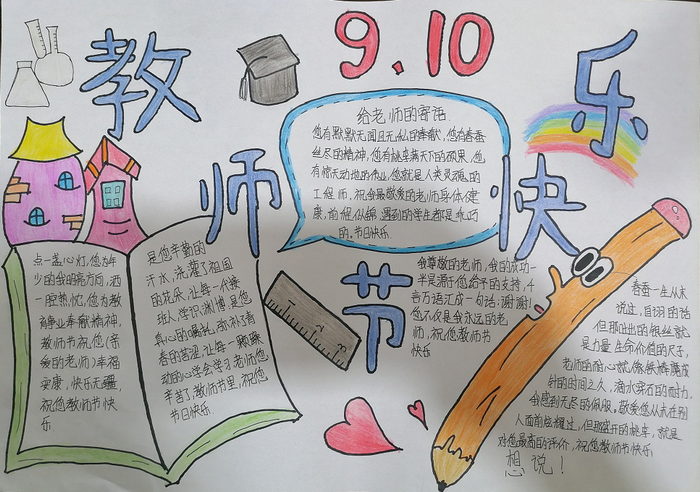 教师节快乐
9.10
给老师的寄语
您有默默无闻且无私的奉献,您有春蚕
丝尽的精神,您有桃李满天下的硕果,您
有惊天动地的伟业,您就是人类灵魂的
工程师,祝会最敬爱的老师身体健
康,前程似锦,遇到的学生都是乖巧
的。节日快乐
点一盏心灯,您为年
少的我明亮方向,洒
一腔热忱,您为教
静业奉献精神,
教师节祝您(亲
爱的老师)幸福
安康,快乐无疆,
祝您教师节快
乐
是您辛勤的
汗水,浇灌了祖国
的花朵,让每一代接
班人学识渊博,是您
真心的嘱
春的苦涩,让每一颗躁
动的心学会学习,老师您
辛苦了,教师节里,祝您
节日快乐
我尊敬的老师,我的成功一
半灵源于您给予的支持,千
言万语汇成一句话:谢谢!
您不仅是我永远的老
师,祝您教师节
快乐
春蚕一生从未
说过,自诩的话
但那吐出的银丝就
是力量,生命价值的尺子,
老师的耐心就像铁棒磨成
针的时间之人,滴水穿石的耐力,
令感到无尽的佩服。敬爱您从未在别
人面前炫耀过,但那盛开的桃李,就是
对您最高的评价,祝您教师节快乐
想说!